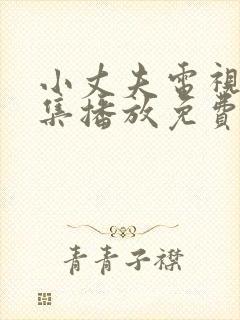 小丈夫電視
集播放免費
青青子襟